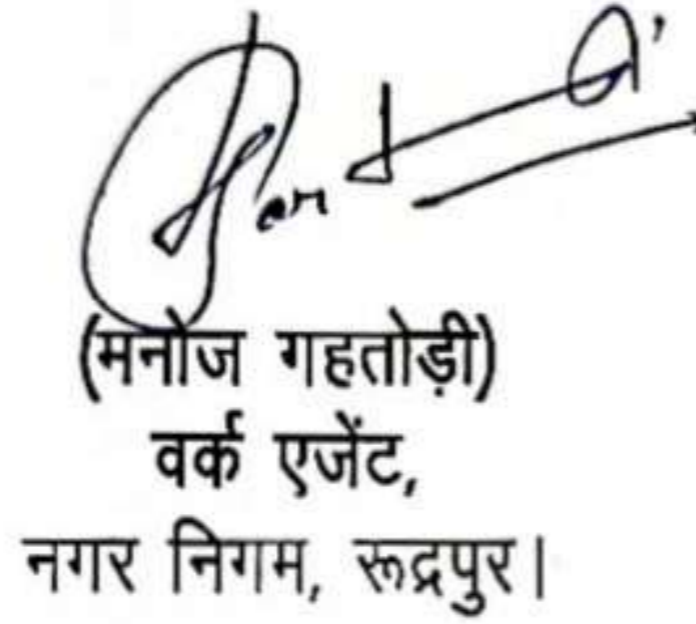 (मनोज गहतोड़ी)
वर्क एजेंट,
नगर निगम, रूद्रपुर।